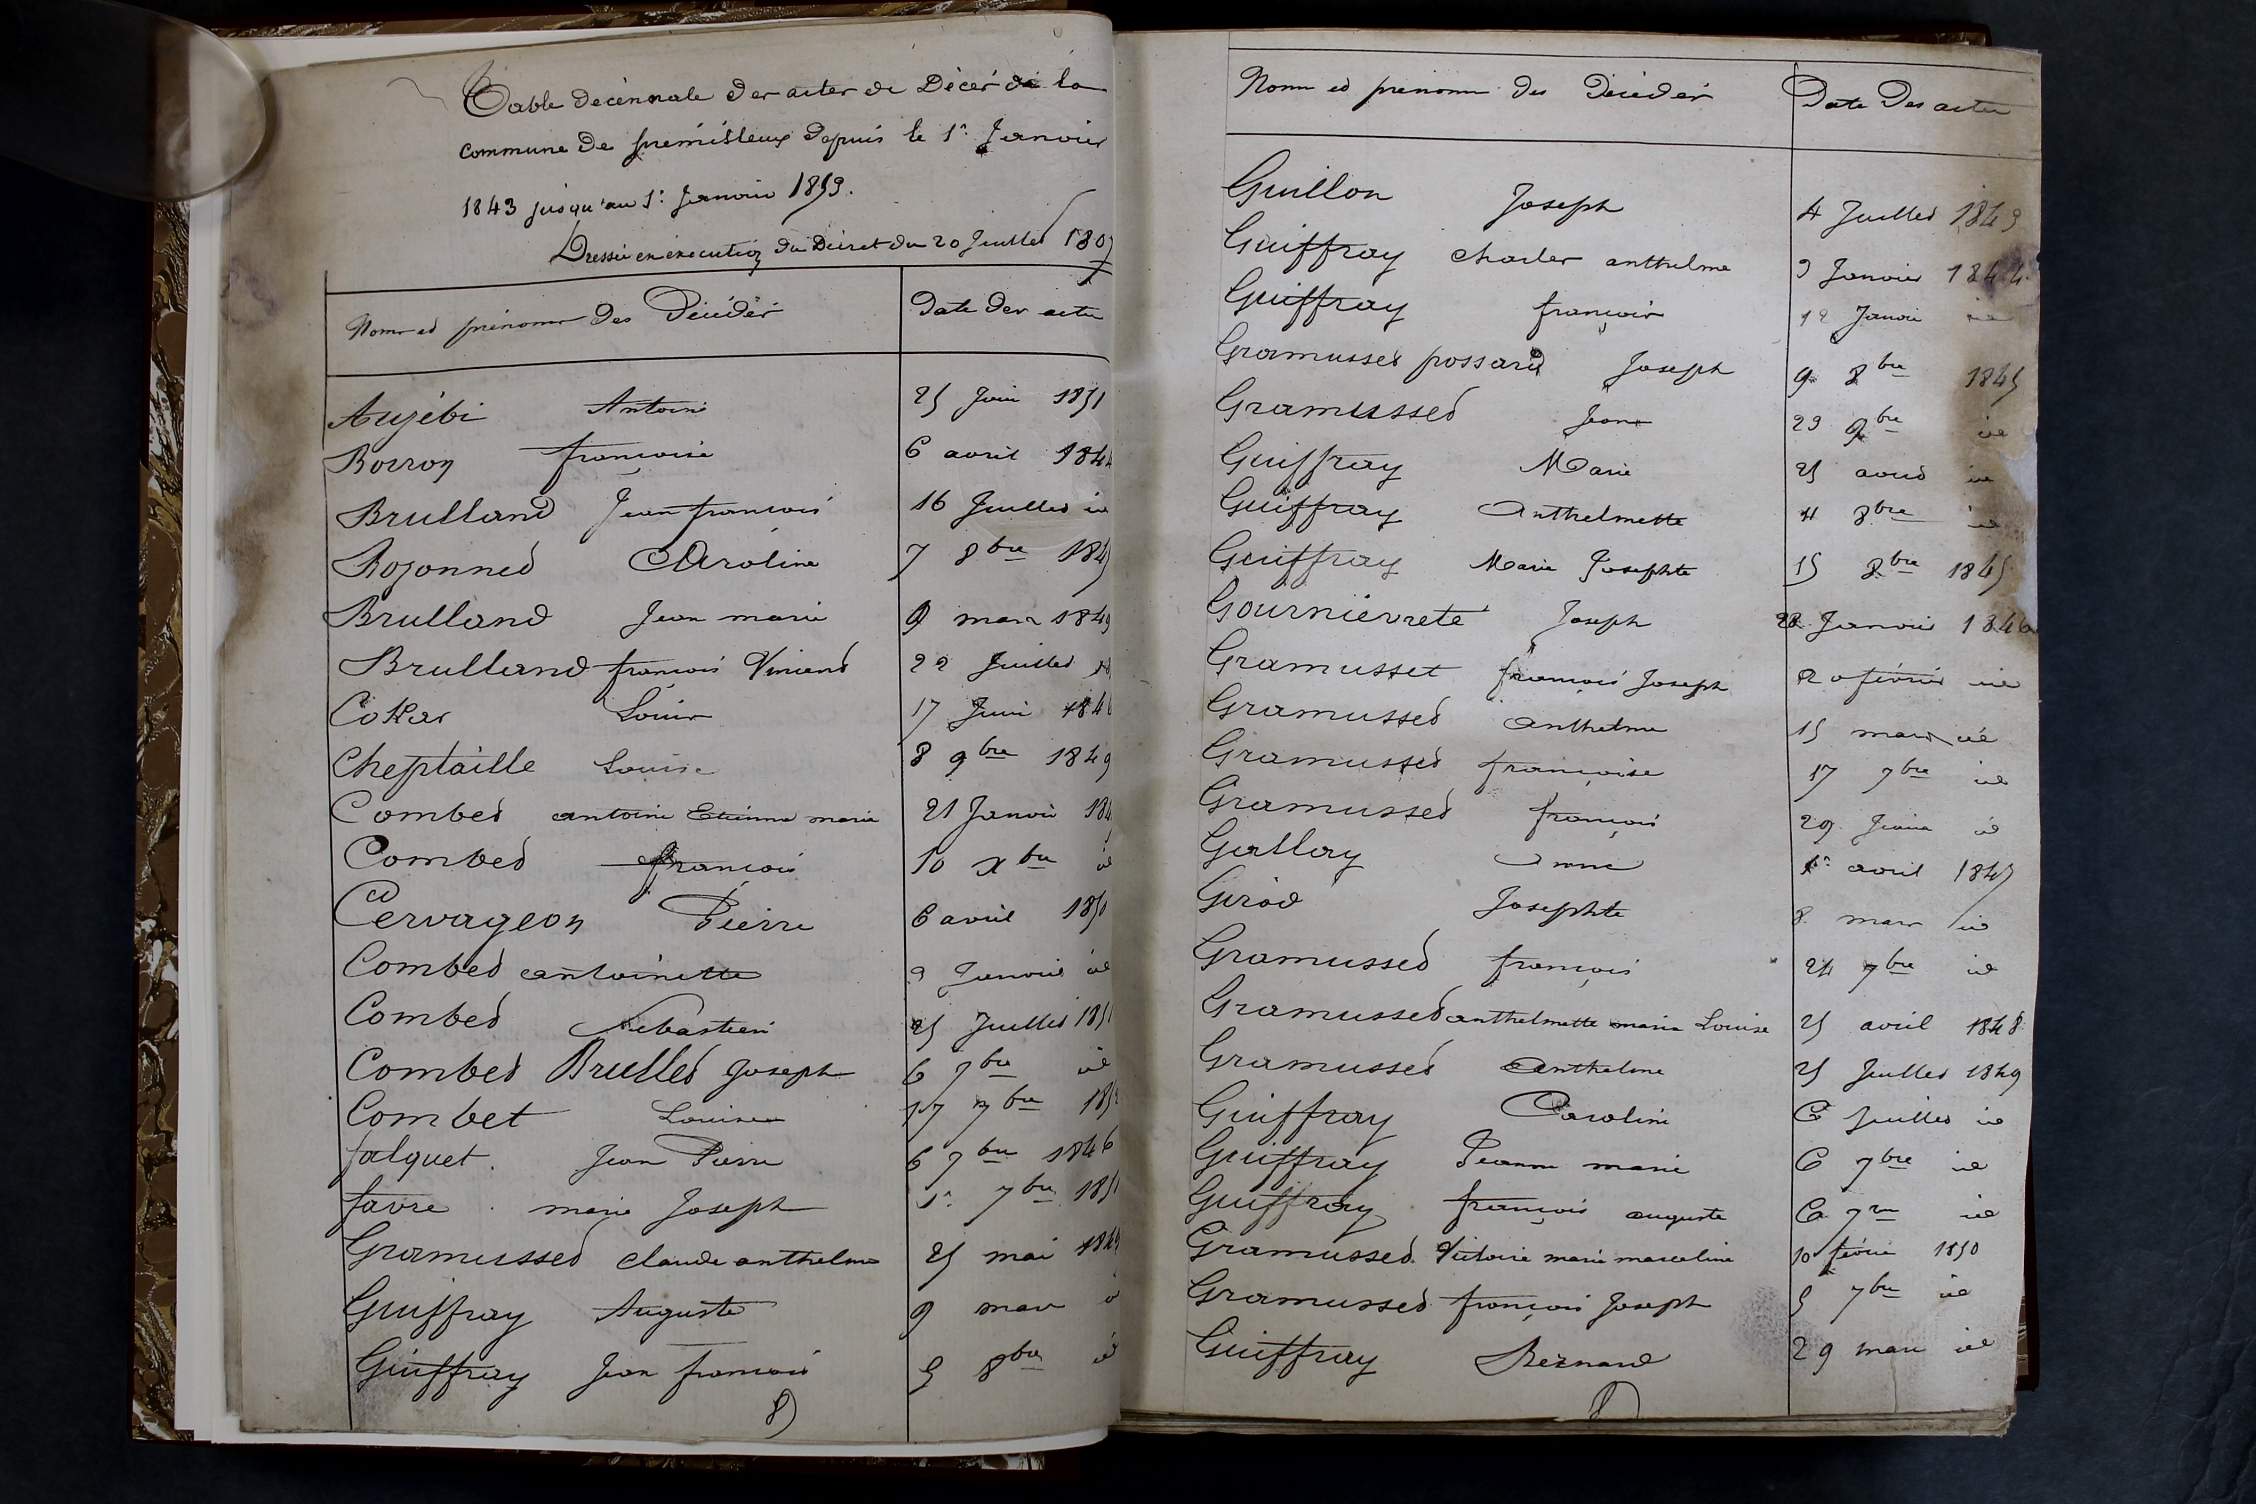 Table decennale des actes de Décès de la
commune de premilleux depuis le 1r. Janvier
1843 jusqu'au 1r. Janvier 1853.
Dressée en execution du Décret du 20 Juillet 1807
Noms et prénoms des Décédés Date des actes
Aujébi Antoine 25 Juin 1851
Borron françoise 6 avril 1844
Brulland Jean françois 16 Juillet id
Rojonned Caroline 7 8bre 1845
Brulland Jean marie 9 mars 1849
Brulland françois Vincend 22 Juillet
Cokar Louis 17 Juin 1846
Cheptaille Louise 8 9bre 1849
Combed antoine Etienne marie 21 Janvier
Combed françois 10 xbre id
Cervageon Pierre 6 avril 1851
Combed antoinette 9 Janvier id
Combed Sebastien 25 Juillet 1851
Combed Brulled Joseph 6 7bre id
Combet Louise 17 7bre
falquet. Jean Pierre 6 7bre 1846
favre. marie Joseph 1r. 7bre 1851
Gramussed claude anthelme 25 mai
Guiffray Auguste 9 mars
Guiffray Jean françois 5 8bre id
Noms et prénoms des Décédés Date Des actes
Guillon Joseph 4 Juillet 1843
Guiffray charles anthelme 9 Janvier 1844
Guiffray françois 12 Janvier
Gramussed possard Joseph 9 8bre 1845
Gramussed Jean 23 9bre id
Guiffray Marie 25 aoud id
Guiffray Anthelmette 4 8bre id
Guiffray Marie Josephte 15 8bre 1845
Gourniévrete Joseph 28 Janvier 1846
Gramusset françois Joseph 20 février id
Gramussed anthelme 15 mars id
Gramussed françoise 17 7bre id
Gramussed françois 29 id
Gallay anne 1r. avril 1847
Girod Josephte 8 mars id
Gramussed françois 24 7bre id
Gramussed anthelmette marie Louise 25 avril 1848
Gramussed anthelme 25 Juillet 1849
Guiffray Caroline 6 Juillet id
Guiffray Jeanne marie 6 7bre id
Guiffray françois auguste 6 7bre id
Gramussed Victoire marie marceline 10 février 1850
Gramussed françois Joseph 5 7bre id
Guiffray Bernard 29 mars id